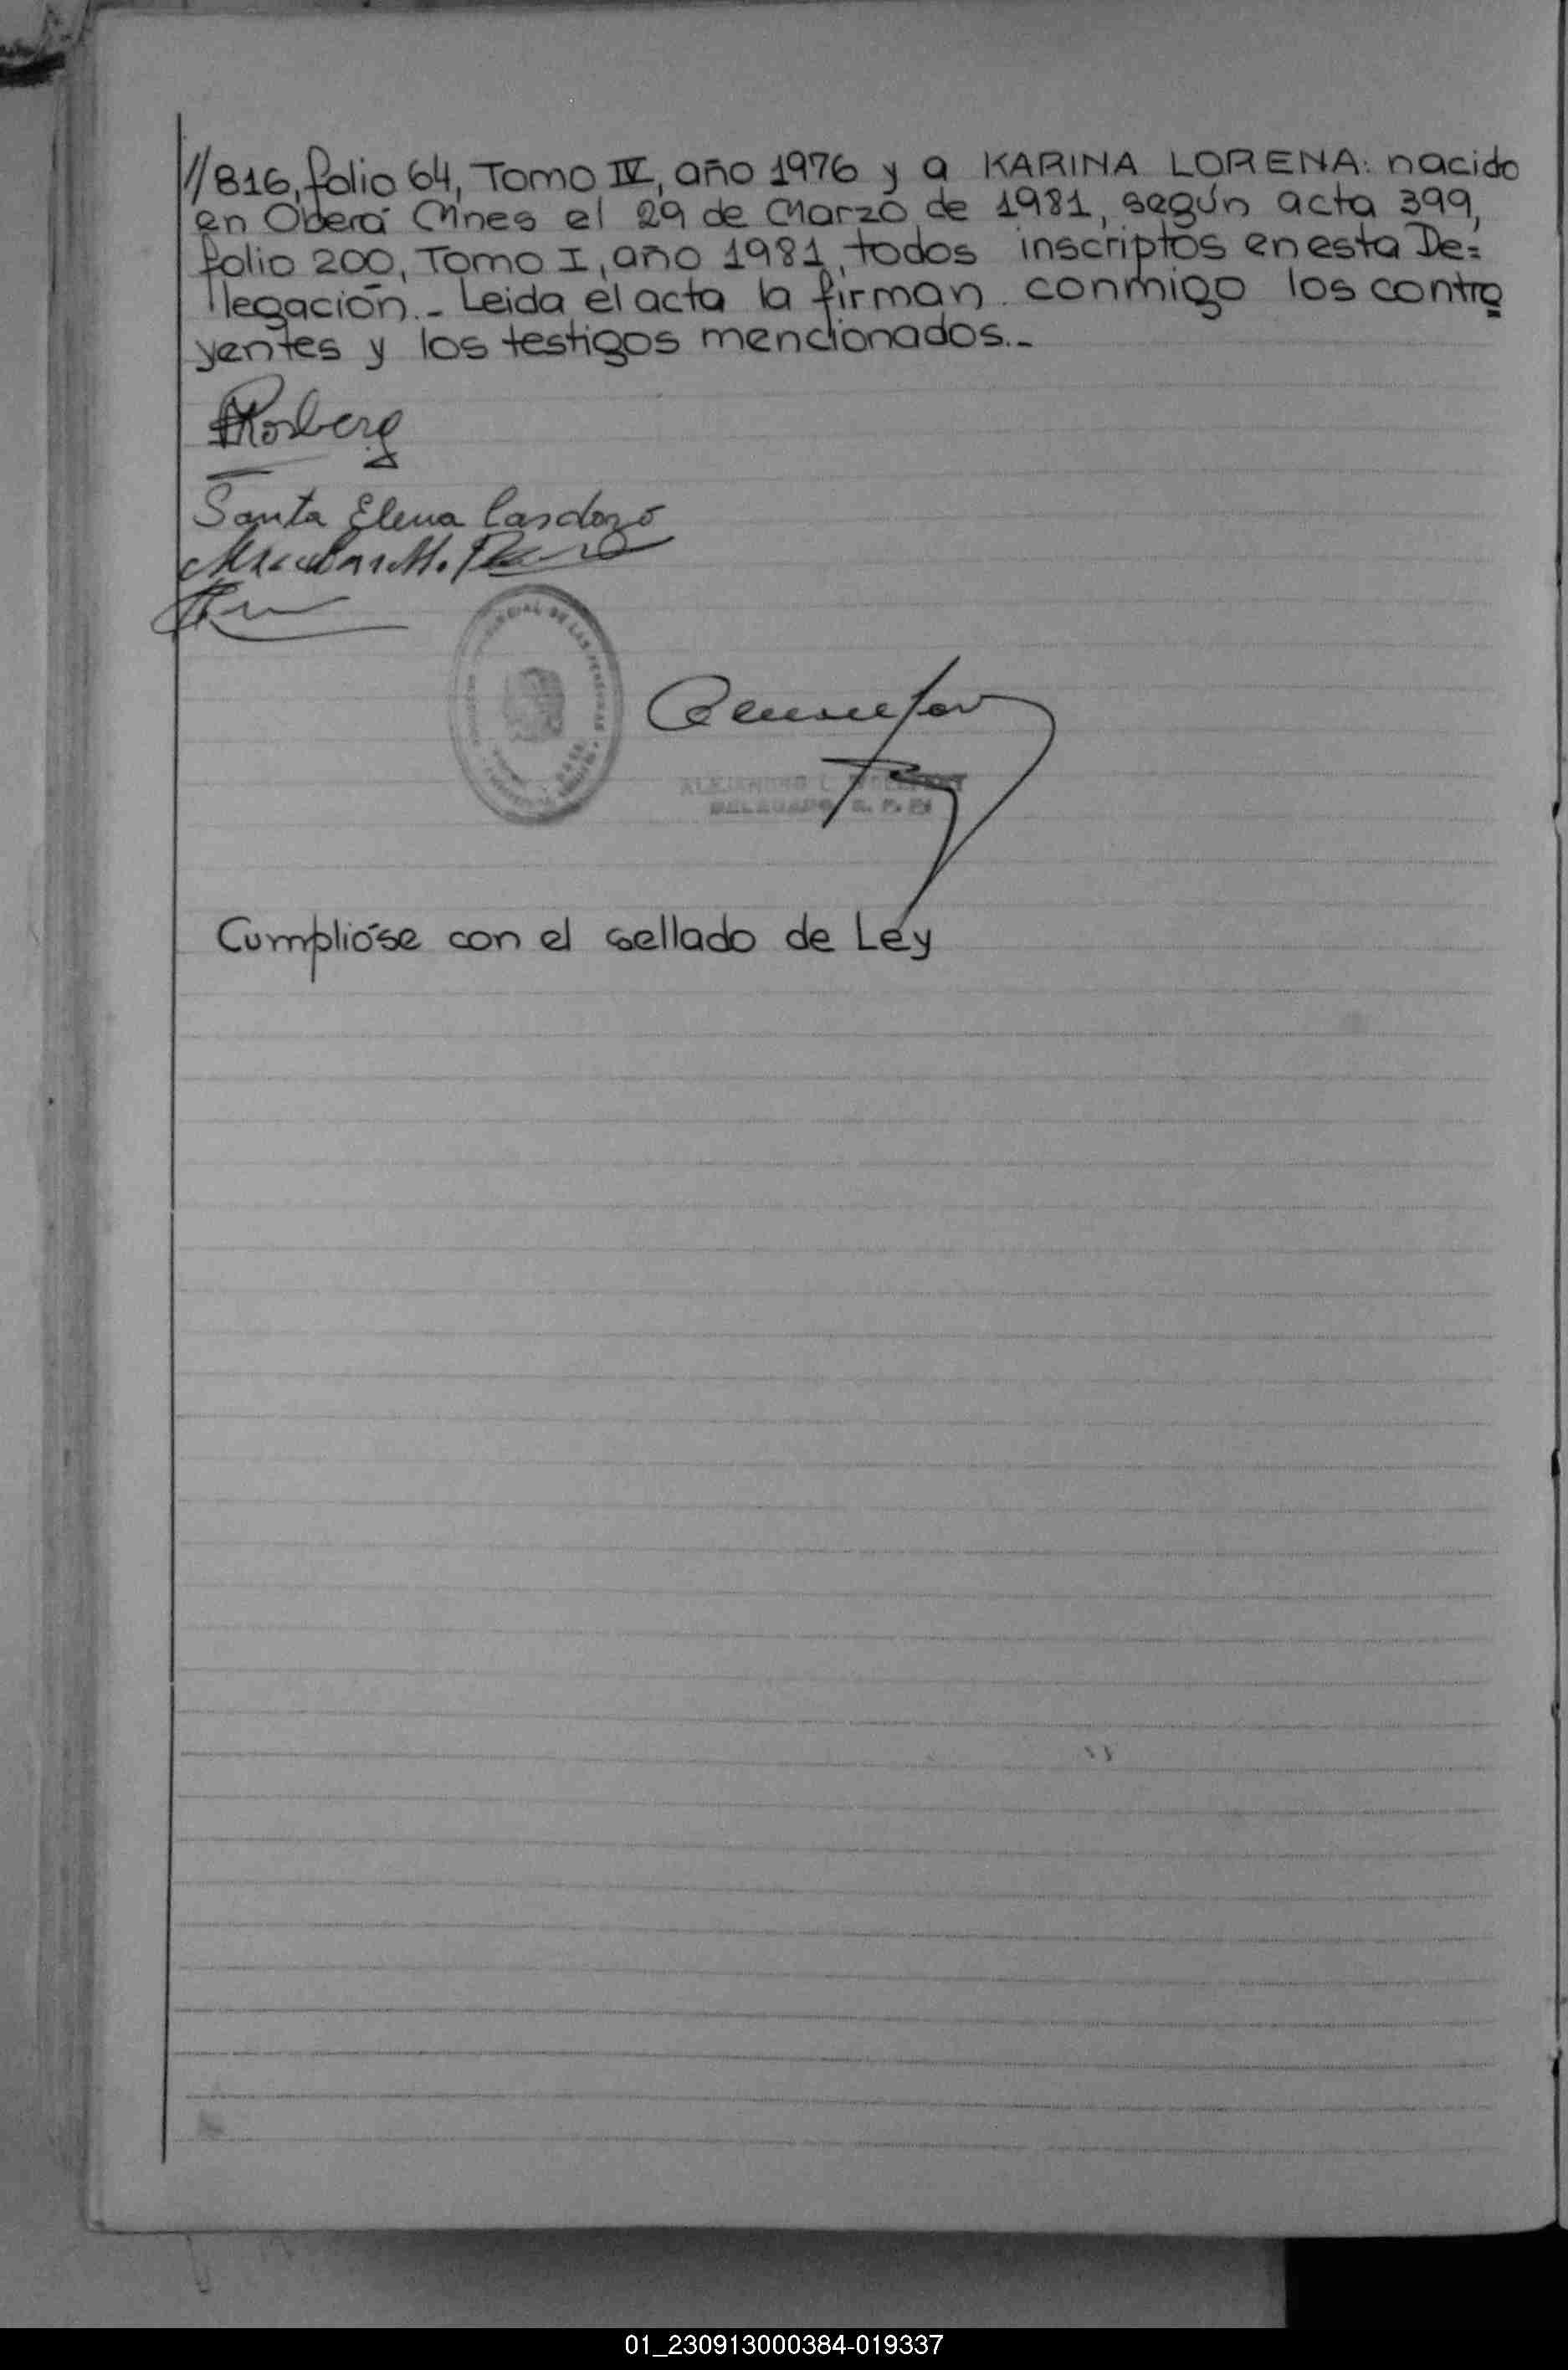 //816, folio 64, Tomo IV, año 1976 y a KARINA LORENA: nacido
en Oberá Mnes el 29 de Marzo de 1981, según acta 399,
folio 200, Tomo I, año 1981, todos inscriptos en esta De=
legación.- Leida el acta la firman conmigo los contra
yentes y los testigos mencionados.-
Rosberg
Santa Elena Cardozo
ALEJANDRO L.
DELEGADO R. P. P.
Cumplióse con el sellado de Ley
01_230913000384-019337